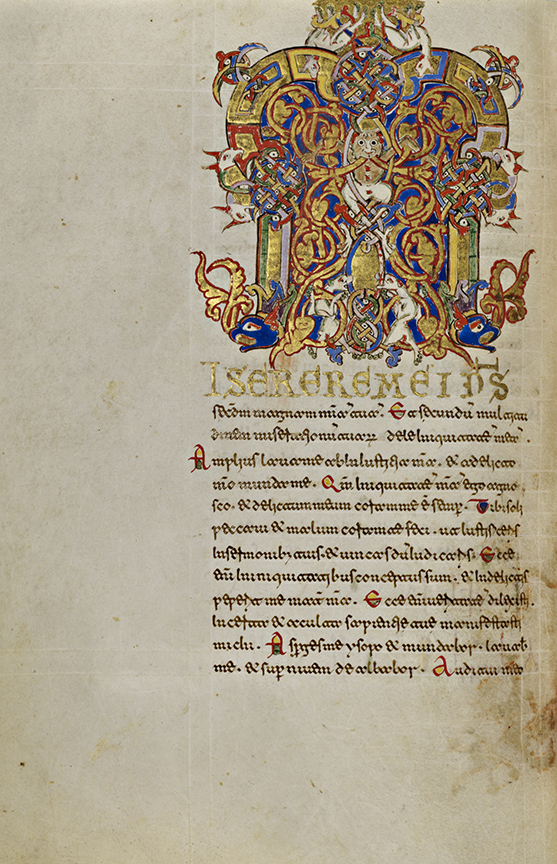 MISERERE MEI DS̄
secdm magnam miam tuam. Et secundū multitu
dinem miserationū tuarum dele iniquitatē meā.
Amplius lava me ab iniustitia mea. & a delicto
meo munda me. Qm̄ iniquitatē meā ego agno
sco. & delictum meum coram me ē semp. Tibi soli
peccavi & malum coram te feci. ut iustificeris
in sermonib; tuis. & vincas dū iudicaris. Ecce
enī in iniquitatibus conceptus sum. & in delictis
peperit me mat mea. Ecce enī veritatē dilexisti.
incerta & occulta sapientie tue manifestasti
michi. Asperges me ysopo & mundabor. lavab
me. & sup nivem dealbabor. Auditui meo